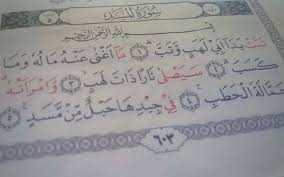 سُورَةُ الْمَسَدِ
بِسْمِ اللَّهِ الرَّحْمَٰنِ الرَّحِيمِ
تَبَّتْ يَدَا أَبِي لَهَبٍ وَتَبَّ ١ مَا أَغْنَىٰ عَنْهُ مَالُهُ وَمَا
كَسَبَ ٢ سَيَصْلَىٰ نَارًا ذَاتَ لَهَبٍ ٣ وَامْرَأَتُهُ
حَمَّالَةَ الْحَطَبِ ٤ فِي جِيدِهَا حَبْلٌ مِّن مَّسَدٍ ٥
٦٠٣